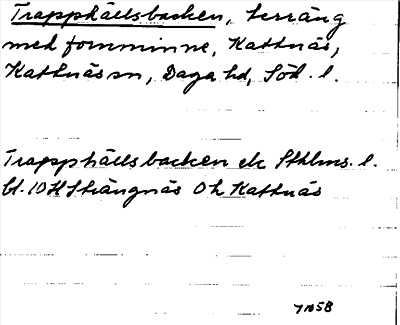 Trapphällsbacken, terräng
med fornminne, Kattnäs,
Kattnäs sn, Daga hd, Söd. l.
Trapphällsbacken ek Sthlms. l.
bl. 10H Strängnäs 0h Kattnäs